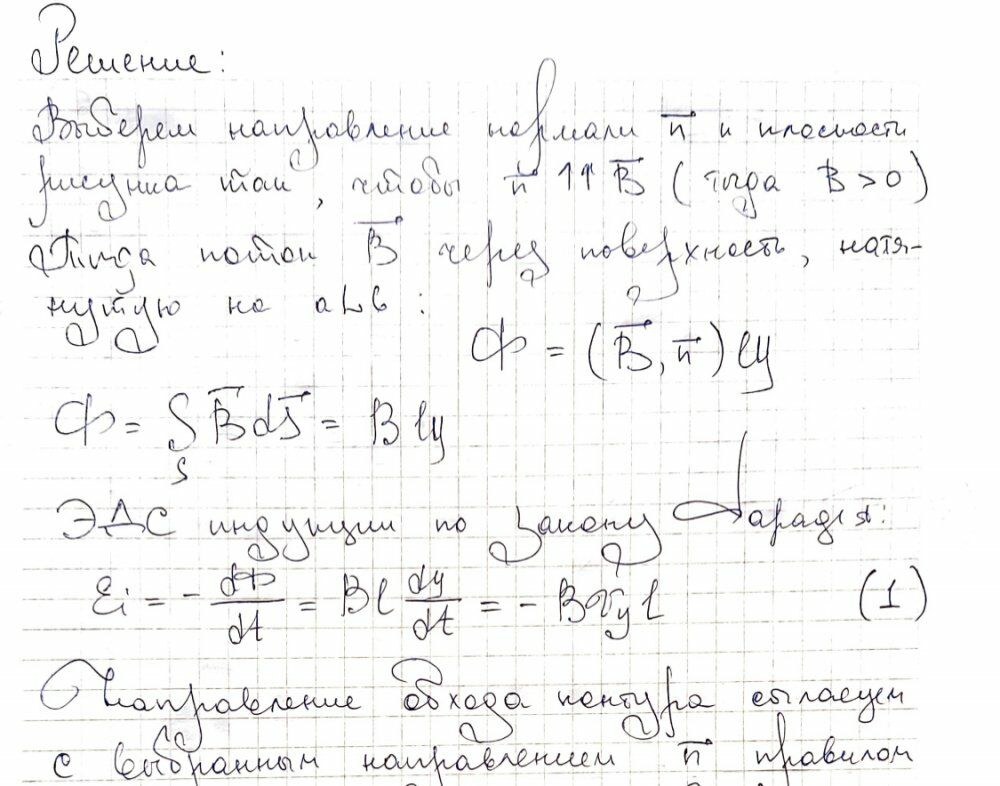 Решение:
Выберем направление нормали n⃗ к плоскости
рисунка так, чтобы n⃗ ↑↑ B⃗ (тогда B > 0)
Тогда поток B⃗ через поверхность, натя-
нутую на aLb :
Ф = (B⃗, n⃗) ly
Ф = ∫_S B⃗ dS⃗ = B ly
ЭДС индукции по закону Фарадея:
Ei = - dФ/dt = B l dy/dt = - B v_y l (1)
Направление обхода контура согласуем
с выбранным направлением n⃗ правилом